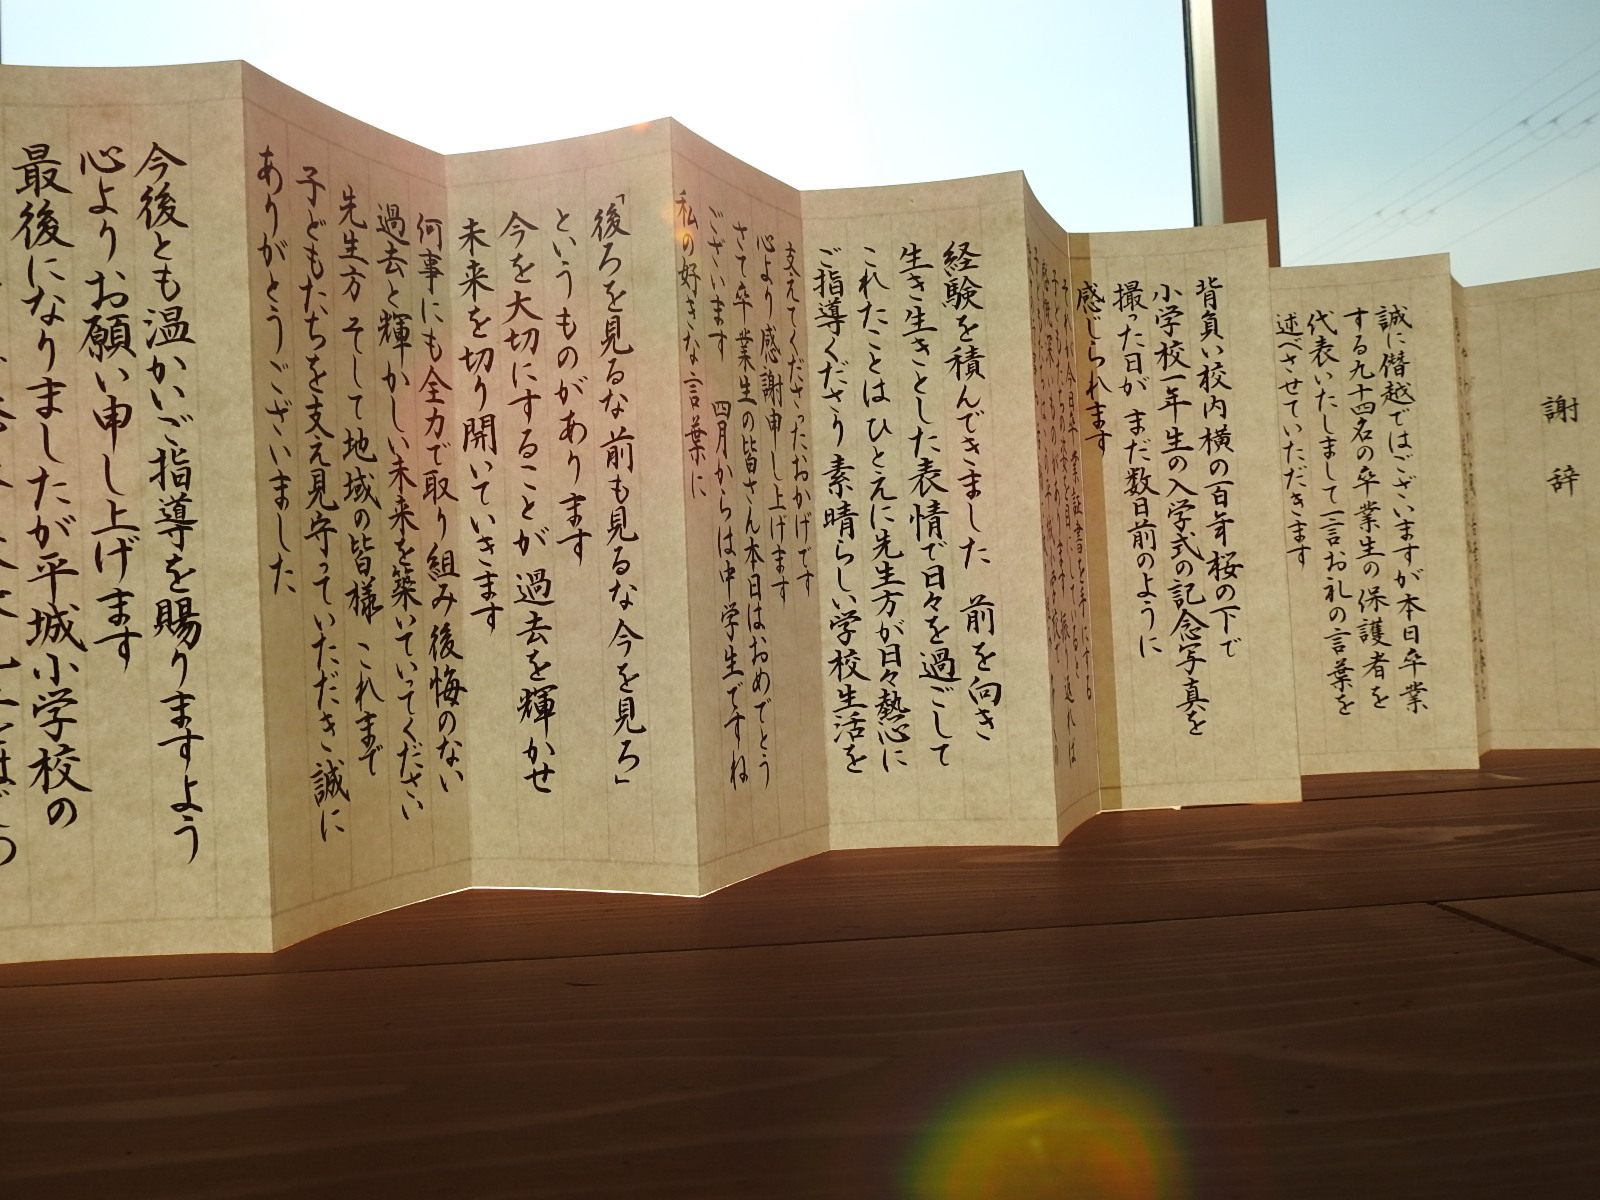 謝辞
誠に僭越ではございますが本日卒業
する九十四名の卒業生の保護者を
代表いたしまして一言お礼の言葉を
述べさせていただきます
背負い校内横の百年桜の下で
小学校一年生の入学式の記念写真を
撮った日が まだ数日前のように
感じられます
それが今日卒業証書を手にする
経験を積んできました 前を向き
生き生きとした表情で日々を過ごして
これたことはひとえに先生方が日々熱心に
ご指導くださり素晴らしい学校生活を
支えてくださったおかげです
心より感謝申し上げます
さて卒業生の皆さん本日はおめでとう
ございます 四月からは中学生ですね
私の好きな言葉に
「後ろを見るな前も見るな今を見ろ」
というものがあります
今を大切にすることが過去を輝かせ
未来を切り開いていきます
何事にも全力で取り組み後悔のない
過去と輝かしい未来を築いていってください
先生方 そして地域の皆様 これまで
子どもたちを支え見守っていただき誠に
ありがとうございました
今後とも温かいご指導を賜りますよう
心よりお願い申し上げます
最後になりましたが平城小学校の